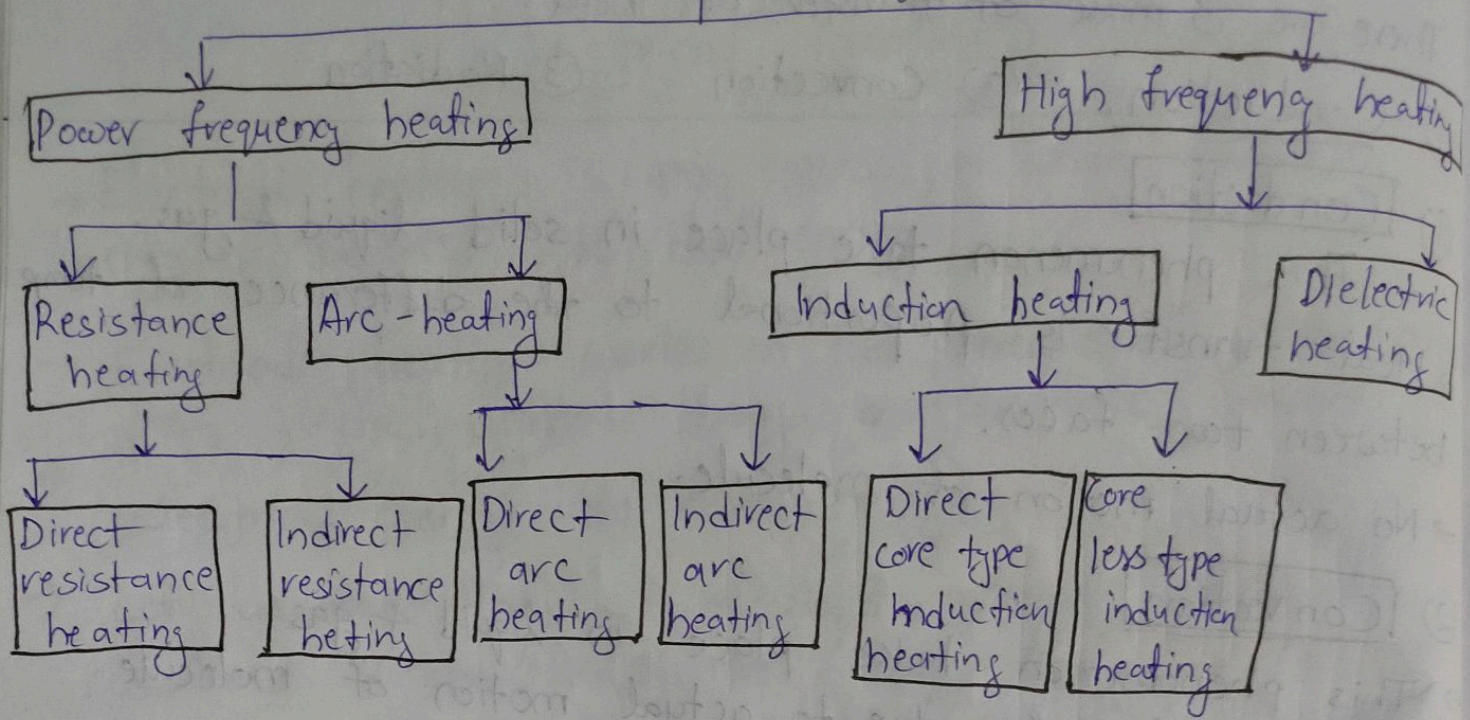 Power frequency heating
High frequency heating
Resistance
heating
Arc-heating
Induction heating
Dielectric
heating
Direct
resistance
heating
Indirect
resistance
heting
Direct
arc
heating
Indirect
arc
heating
Direct
core type
induction
heating
Core
less type
induction
heating